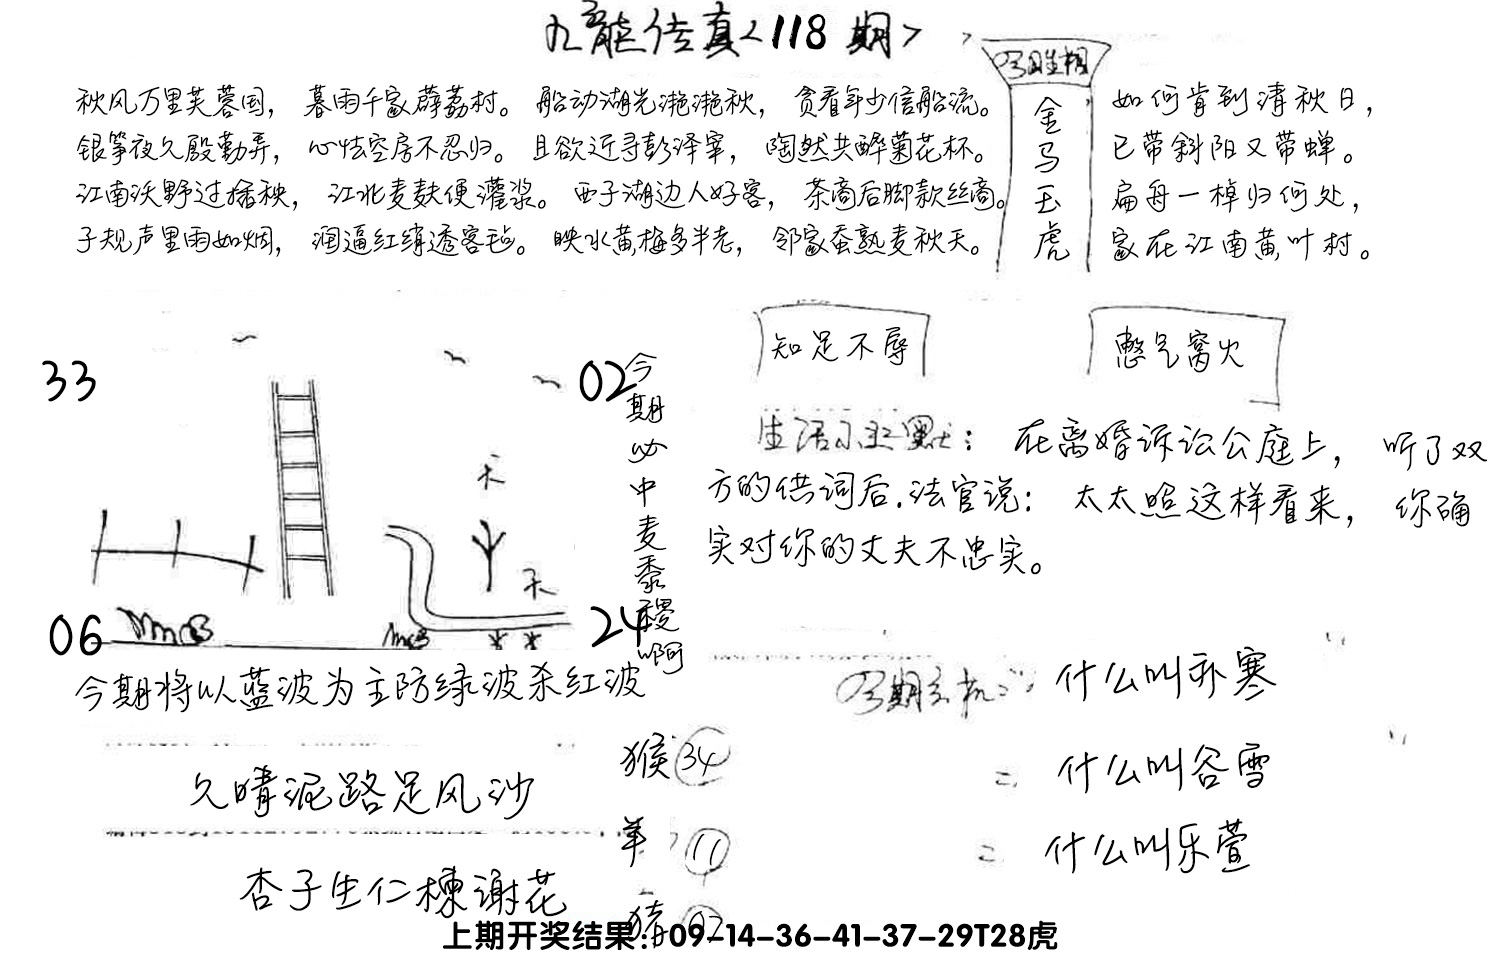 九龙传真<118期>
秋风万里芙蓉国，暮雨千家薜荔村。船动湖光滟滟秋，贪看年少信船流。
银筝夜久殷勤弄，心怯空房不忍归。且欲近寻彭泽宰，陶然共醉菊花杯。
江南沃野过插秧，江北麦麸便灌浆。西子湖边人好客，茶商后脚款丝商。
子规声里雨如烟，润逼红绡透客毡。映水黄梅多半老，邻家蚕熟麦秋天。
今日生相
金马玉虎
如何肯到清秋日，
已带斜阳又带蝉。
扁舟一棹归何处，
家在江南黄叶村。
33
02
06
24
天
天
今期必中麦黍稷啊
知足不辱
憋气窝火
生活小幽默：在离婚诉讼公庭上，听了双
方的供词后.法官说：太太照这样看来，你确
实对你的丈夫不忠实。
今期将以蓝波为主防绿波杀红波
今期玄机：什么叫祁寒
什么叫谷雪
什么叫乐萱
久晴泥路足风沙
杏子生仁楝谢花
猴34
羊11
猪02
上期开奖结果：09-14-36-41-37-29T28虎